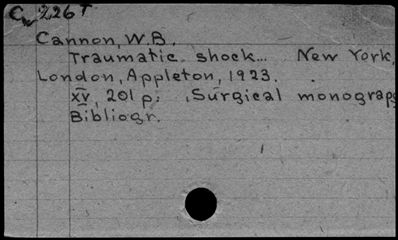 C 226T
Cannon, W.B.
Traumatic shock... New York,
London, Appleton, 1923.
xv, 201 p. Surgical monograp
Bibliogr.